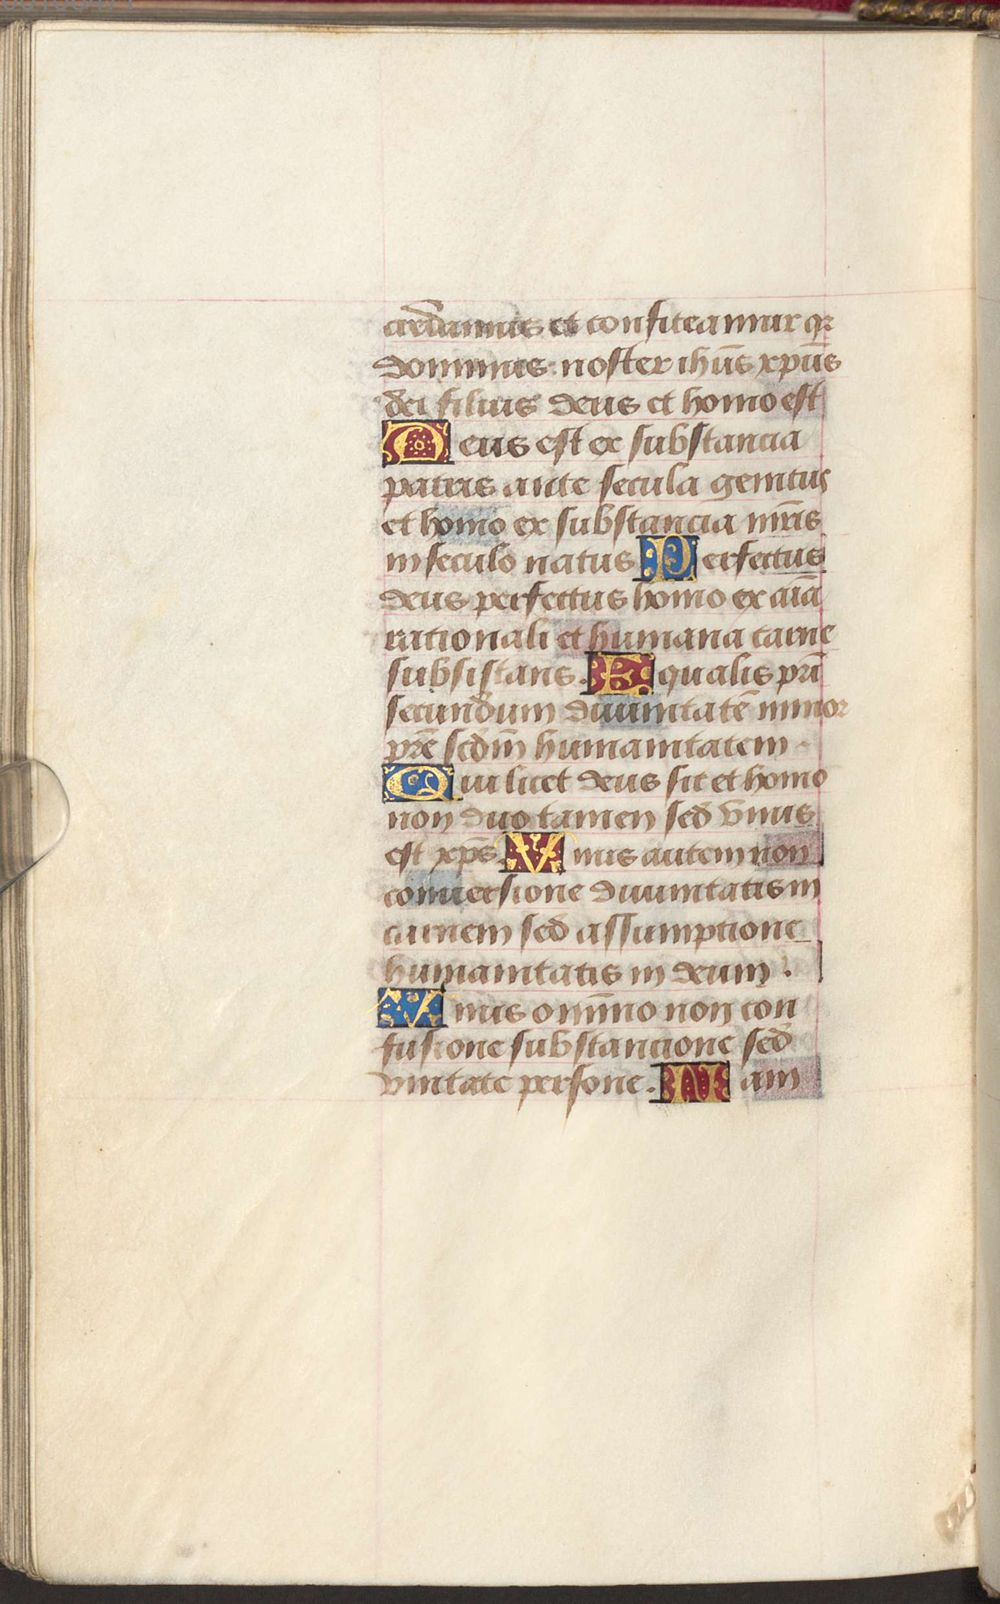 credamus et confiteamur qr
dominus noster ihūs xpūs
dei filius deus et homo est
Deus est ex substancia
patris ante secula genitus
et homo ex substancia mrīs
in seculo natus Perfectus
deus perfectus homo ex aīa
rationali et humana carne
subsistans. Equalis prī
secundum diuinitatē minor
prē scdm̄ humanitatem
Qui licet deus sit et homo
non duo tamen sed vnus
est xpс̄. Vnus autem non
conuersione diuinitatis in
carnem sed assumptione
humanitatis in deum.
Vnus omīno non con
fusione substancione sed
vnitate persone. Nam